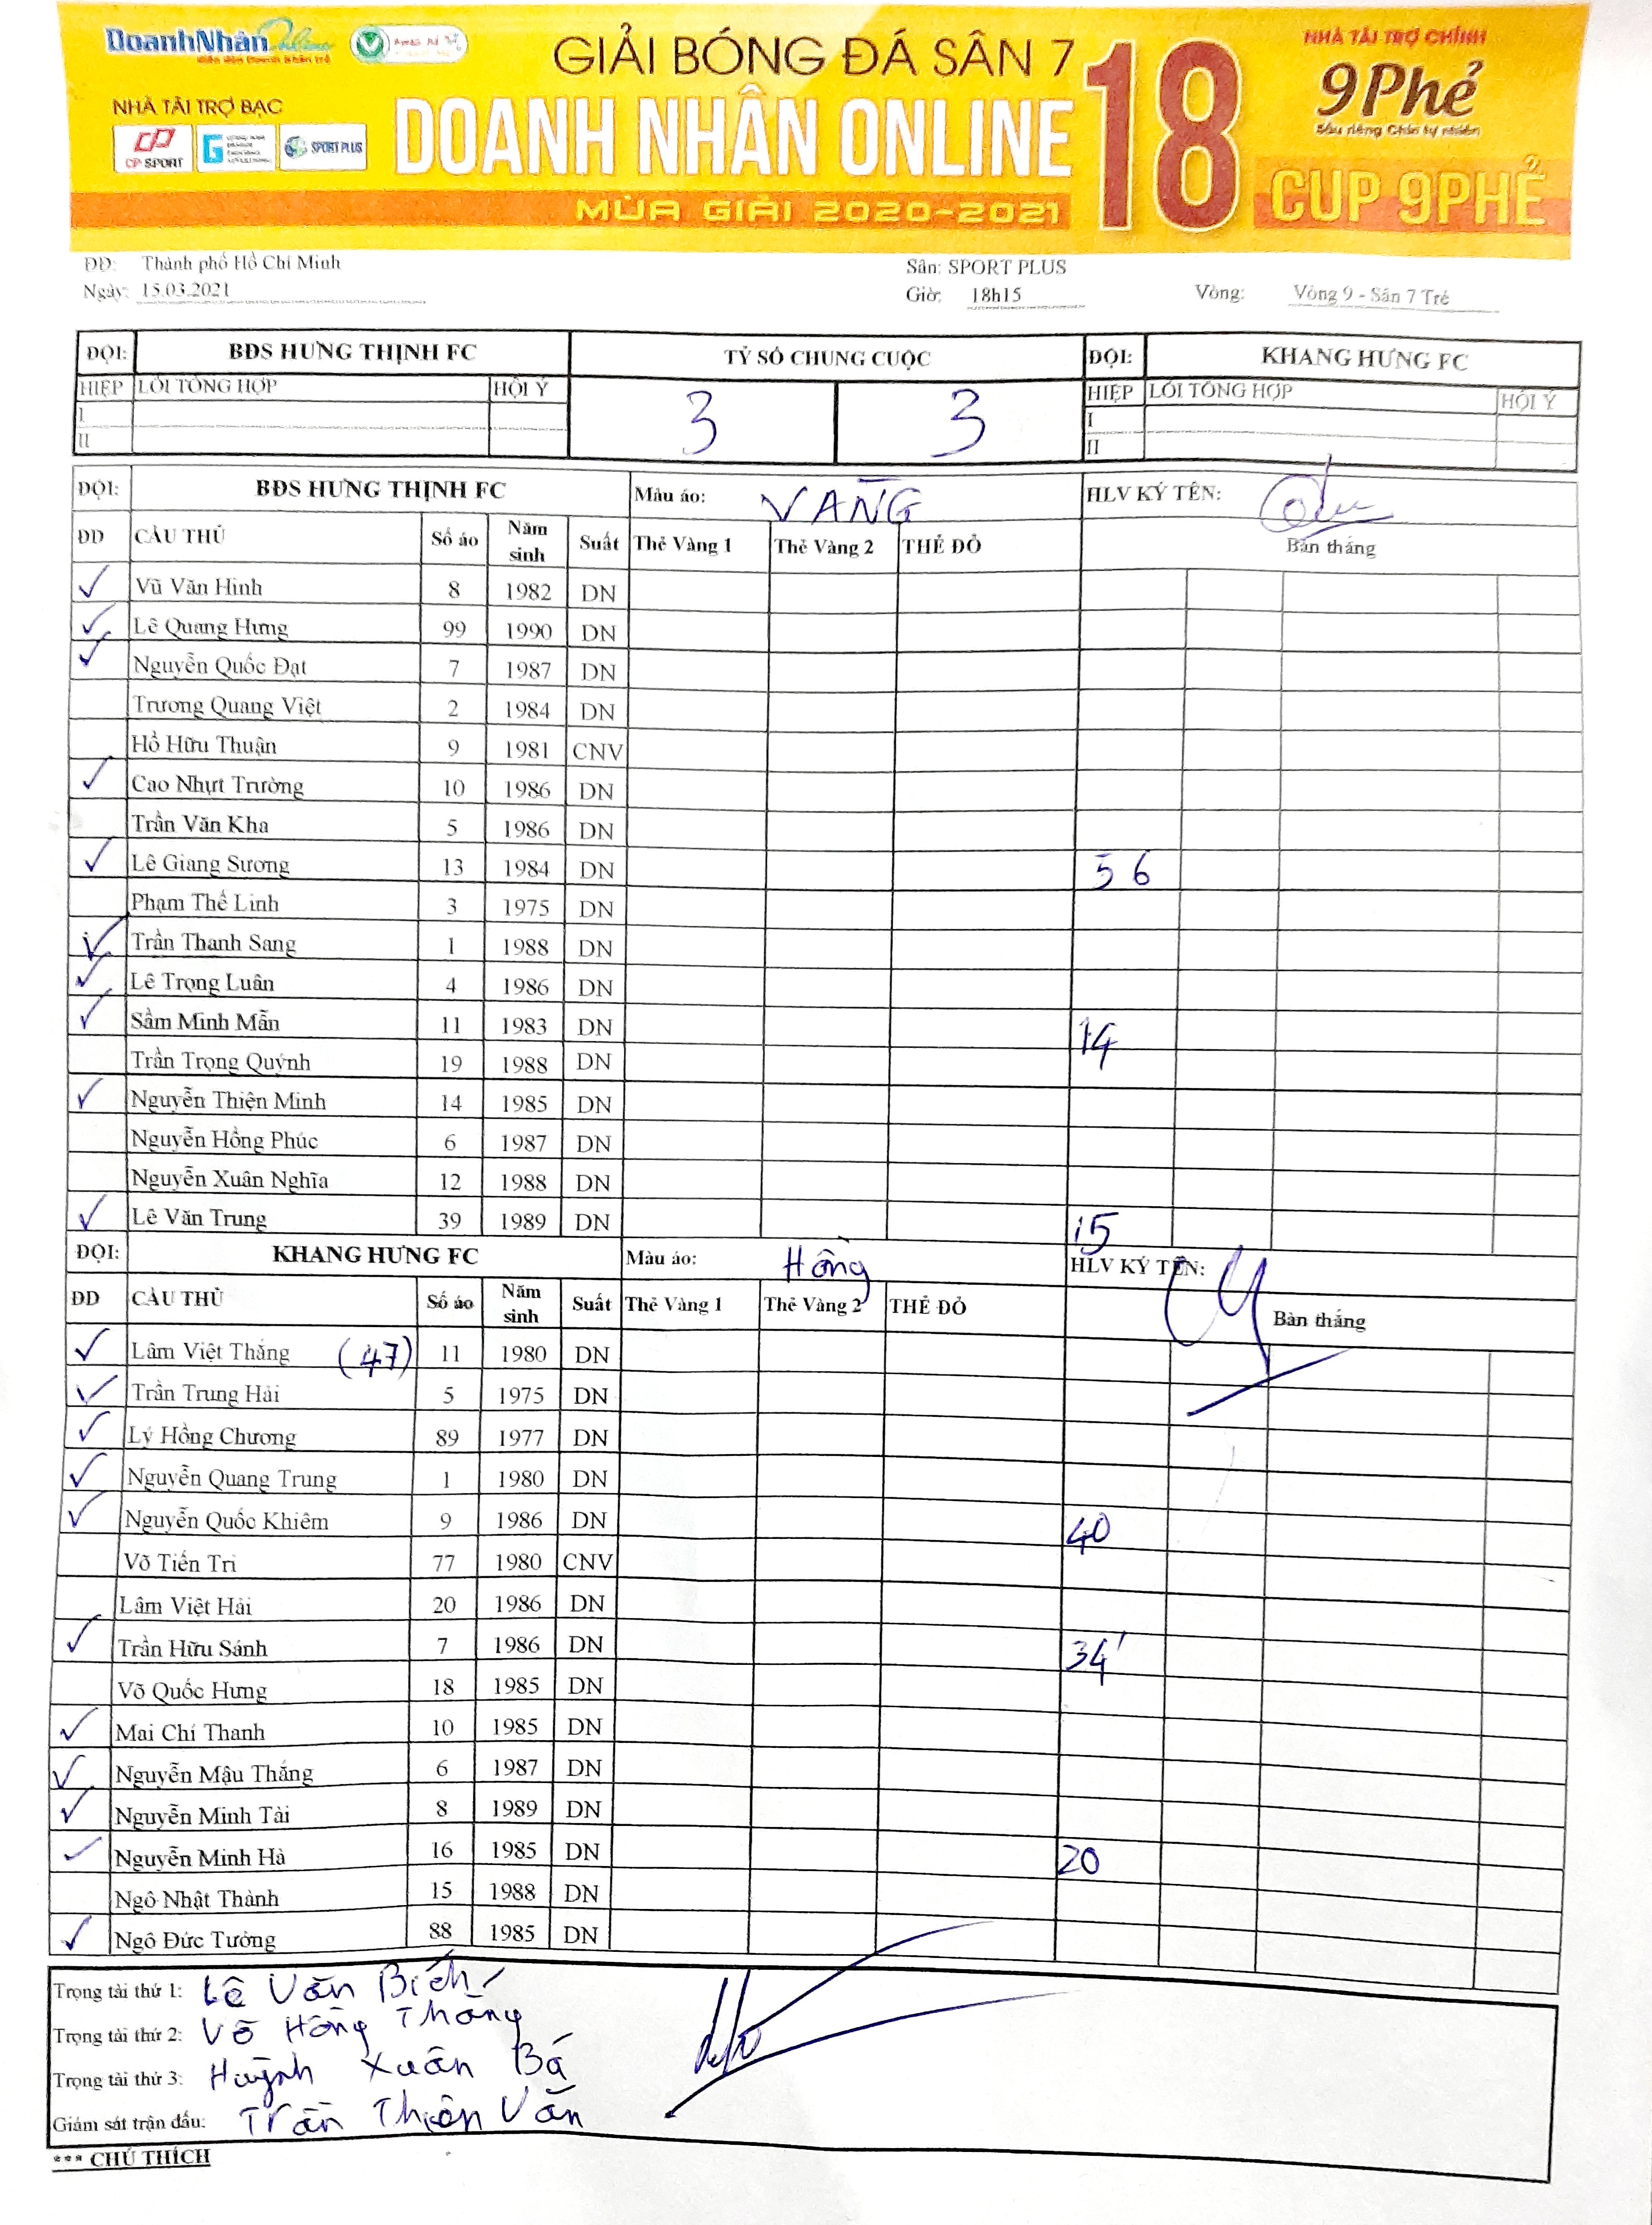 DoanhNhân Online
NHÀ TÀI TRỢ BẠC
CP SPORT
SPORT PLUS
GIẢI BÓNG ĐÁ SÂN 7
DOANH NHÂN ONLINE
18
MÙA GIẢI 2020-2021
NHÀ TÀI TRỢ CHÍNH
9Phẻ
Sầu riêng Chín tự nhiên
CUP 9PHẺ
ĐĐ: Thành phố Hồ Chí Minh Sân: SPORT PLUS
Ngày: 15.03.2021 Giờ: 18h15 Vòng: Vòng 9 - Sân 7 Trẻ
ĐỘI: BĐS HƯNG THỊNH FC TỶ SỐ CHUNG CUỘC ĐỘI: KHANG HƯNG FC
HIỆP LỖI TỔNG HỢP HỘI Ý 3 3 HIỆP LỖI TỔNG HỢP HỘI Ý
I I
II II
ĐỘI: BĐS HƯNG THỊNH FC Màu áo: VÀNG HLV KÝ TÊN:
ĐD CẦU THỦ Số áo Năm sinh Suất Thẻ Vàng 1 Thẻ Vàng 2 THẺ ĐỎ Bàn thắng
Vũ Văn Hinh 8 1982 DN
Lê Quang Hưng 99 1990 DN
Nguyễn Quốc Đạt 7 1987 DN
Trương Quang Việt 2 1984 DN
Hồ Hữu Thuận 9 1981 CNV
Cao Nhựt Trường 10 1986 DN
Trần Văn Kha 5 1986 DN
Lê Giang Sương 13 1984 DN 56
Phạm Thế Linh 3 1975 DN
Trần Thanh Sang 1 1988 DN
Lê Trọng Luân 4 1986 DN
Sầm Minh Mẫn 11 1983 DN 14
Trần Trọng Quýnh 19 1988 DN
Nguyễn Thiện Minh 14 1985 DN
Nguyễn Hồng Phúc 6 1987 DN
Nguyễn Xuân Nghĩa 12 1988 DN
Lê Văn Trung 39 1989 DN 15
ĐỘI: KHANG HƯNG FC Màu áo: Hồng HLV KÝ TÊN:
ĐD CẦU THỦ Số áo Năm sinh Suất Thẻ Vàng 1 Thẻ Vàng 2 THẺ ĐỎ Bàn thắng
Lâm Việt Thắng (47) 11 1980 DN
Trần Trung Hải 5 1975 DN
Lý Hồng Chương 89 1977 DN
Nguyễn Quang Trung 1 1980 DN
Nguyễn Quốc Khiêm 9 1986 DN 40
Võ Tiến Tri 77 1980 CNV
Lâm Việt Hải 20 1986 DN
Trần Hữu Sánh 7 1986 DN 34'
Võ Quốc Hưng 18 1985 DN
Mai Chí Thanh 10 1985 DN
Nguyễn Mậu Thắng 6 1987 DN
Nguyễn Minh Tài 8 1989 DN
Nguyễn Minh Hà 16 1985 DN 20
Ngô Nhật Thành 15 1988 DN
Ngô Đức Tường 88 1985 DN
Trọng tài thứ 1: Lê Văn Bích
Trọng tài thứ 2: Võ Hồng Thắng
Trọng tài thứ 3: Huỳnh Xuân Bá
Giám sát trận đấu: Trần Thiện Văn
*** CHÚ THÍCH